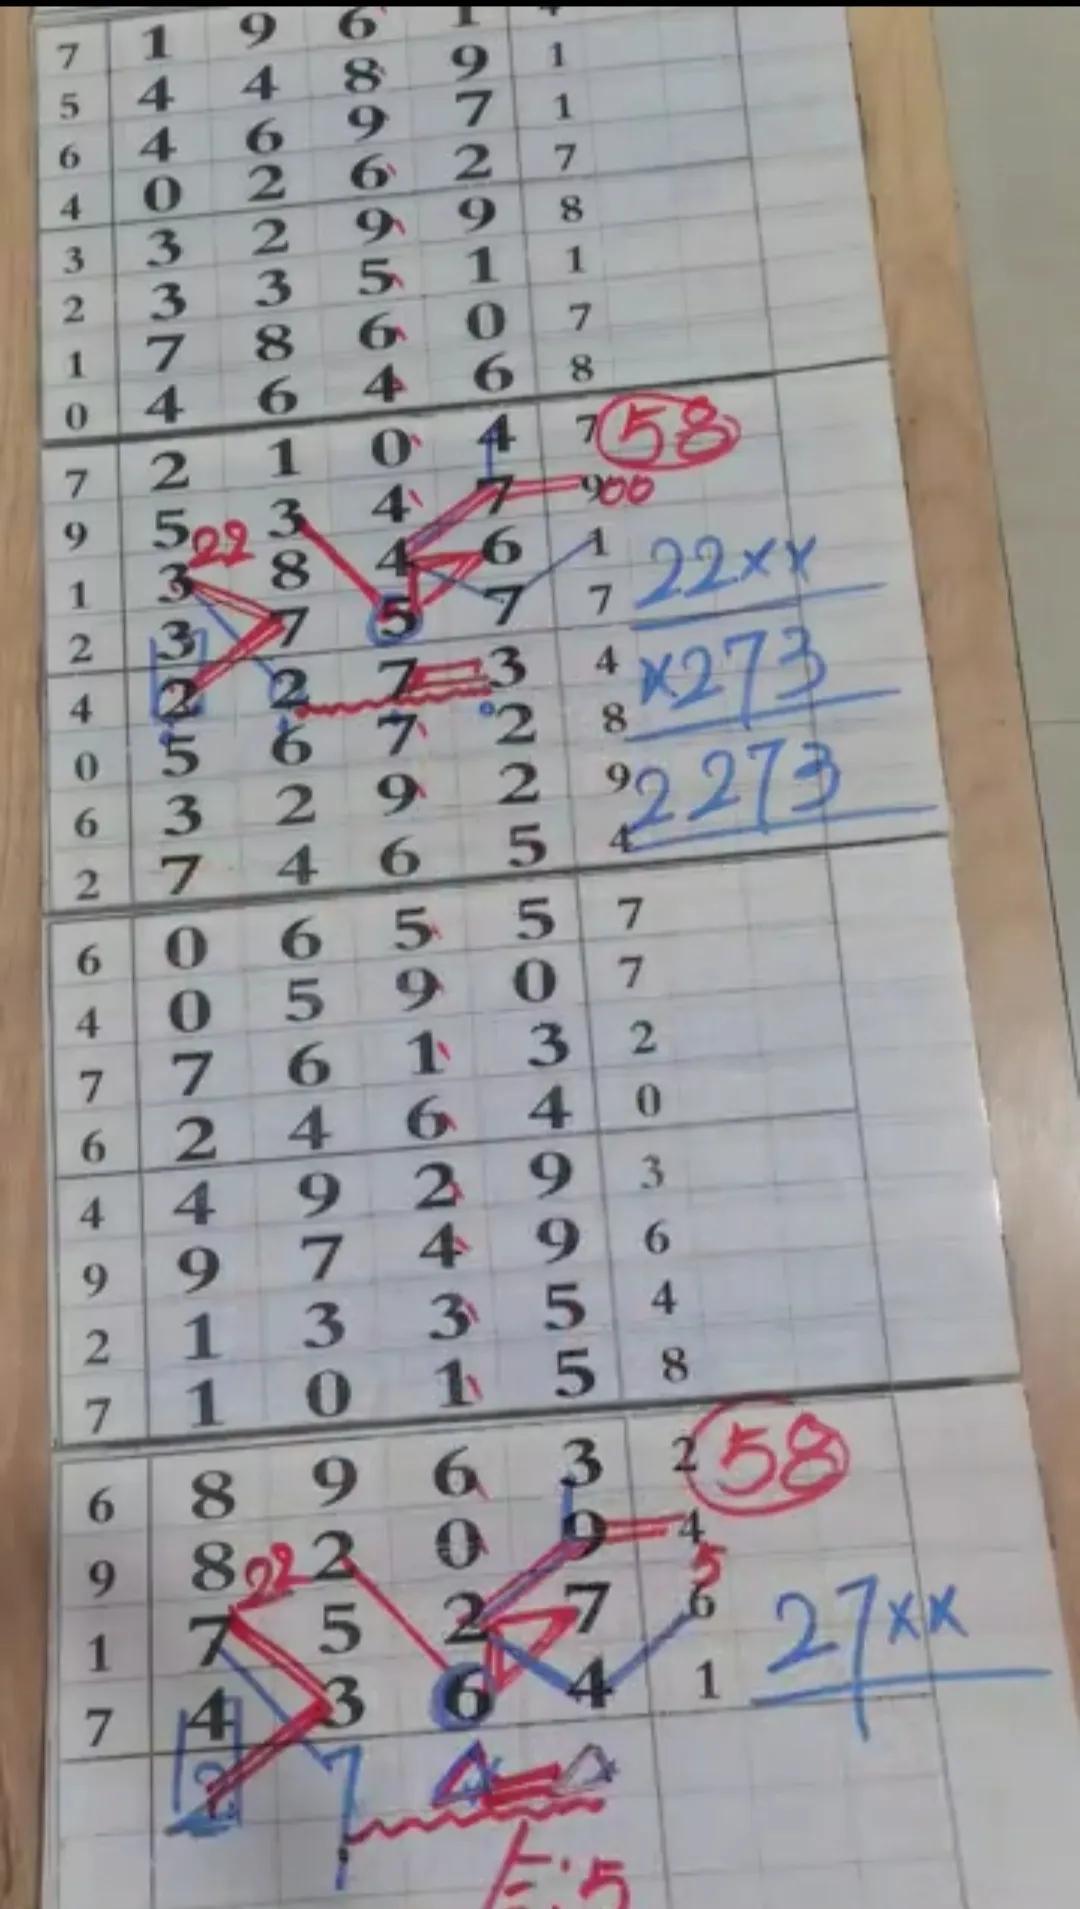 7 1 9 6 1
5 4 4 8 9 1
6 4 6 9 7 1
4 0 2 6 2 7
3 3 2 9 9 8
2 3 3 5 1 1
1 7 8 6 0 7
0 4 6 4 6 8
7 2 1 0 4 7 58
9 5 3 4 7 9 00
1 3 22 8 4 6 1 22××
2 3 7 5 7 7
4 2 2 7 3 4 ×273
0 5 6 7 2 8
6 3 2 9 2 9 2273
2 7 4 6 5 4
6 0 6 5 5 7
4 0 5 9 0 7
7 7 6 1 3 2
6 2 4 6 4 0
4 4 9 2 9 3
9 9 7 4 9 6
2 1 3 3 5 4
7 1 0 1 5 8
6 8 9 6 3 2 58
9 8 22 2 0 9 4 5
1 7 5 2 7 6 27××
7 4 3 6 4 1
2 7
E:5